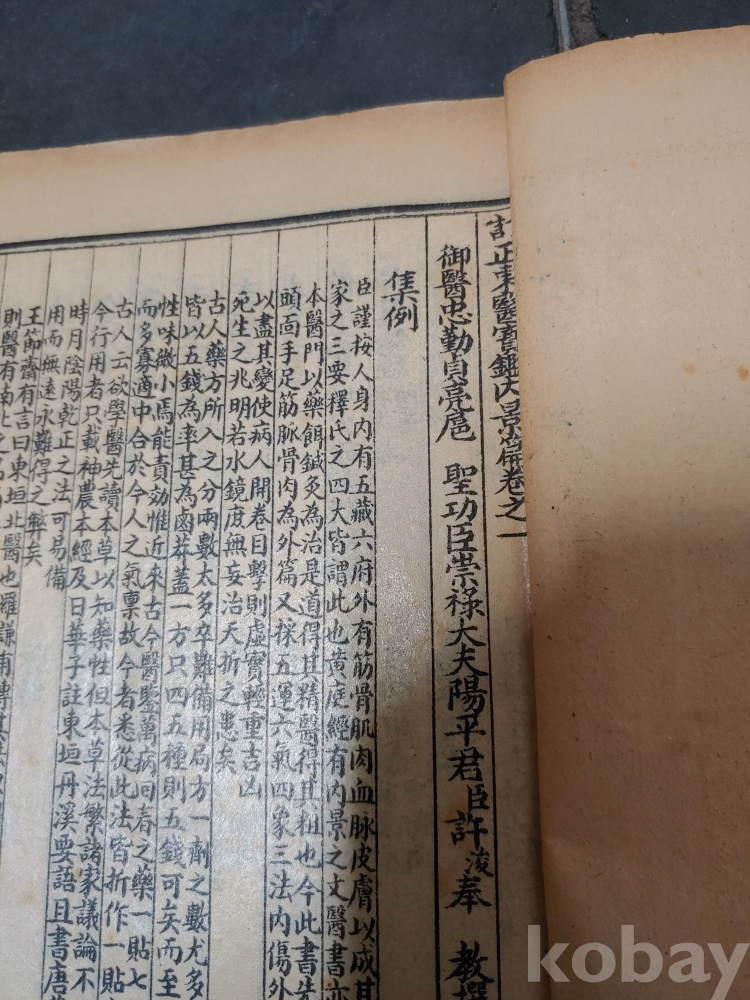 訂正東醫寶鑑內景篇卷之一
御醫忠勤貞亮扈 聖功臣崇祿大夫陽平君臣許浚奉 教撰
集例
臣謹按人身內有五藏六府外有筋骨肌肉血脉皮膚以成其
家之三要釋氏之四大皆謂此也黃庭經有內景之文醫書亦
本醫門以藥餌鍼灸為治是道得其精醫得其粗也今此書先
頭面手足筋脉骨肉為外篇又採五運六氣四象三法內傷外
以盡其變使病人開卷目擊則虛實輕重吉凶
死生之兆明若水鏡庶無妄治夭折之患矣
古人藥方所入之分兩數太多卒難備用局方一劑之數尤多
皆以五錢為率甚為鹵莽蓋一方只四五種則五錢可矣而至
性味微小焉能責効惟近來古今醫鑒萬病回春之藥一貼七
而多寡適中合於今人之氣禀故今者悉從此法皆折作一貼
古人云欲學醫先讀本草以知藥性但本草法繁諸家議論不
今行用者只載神農本經及日華子註東垣丹溪要語且書唐
時月陰陽乾正之法可易備
用而無遠求難得之弊矣
王節齋有言曰東垣北醫也羅謙甫傳其法
則醫有南北之名
kobay